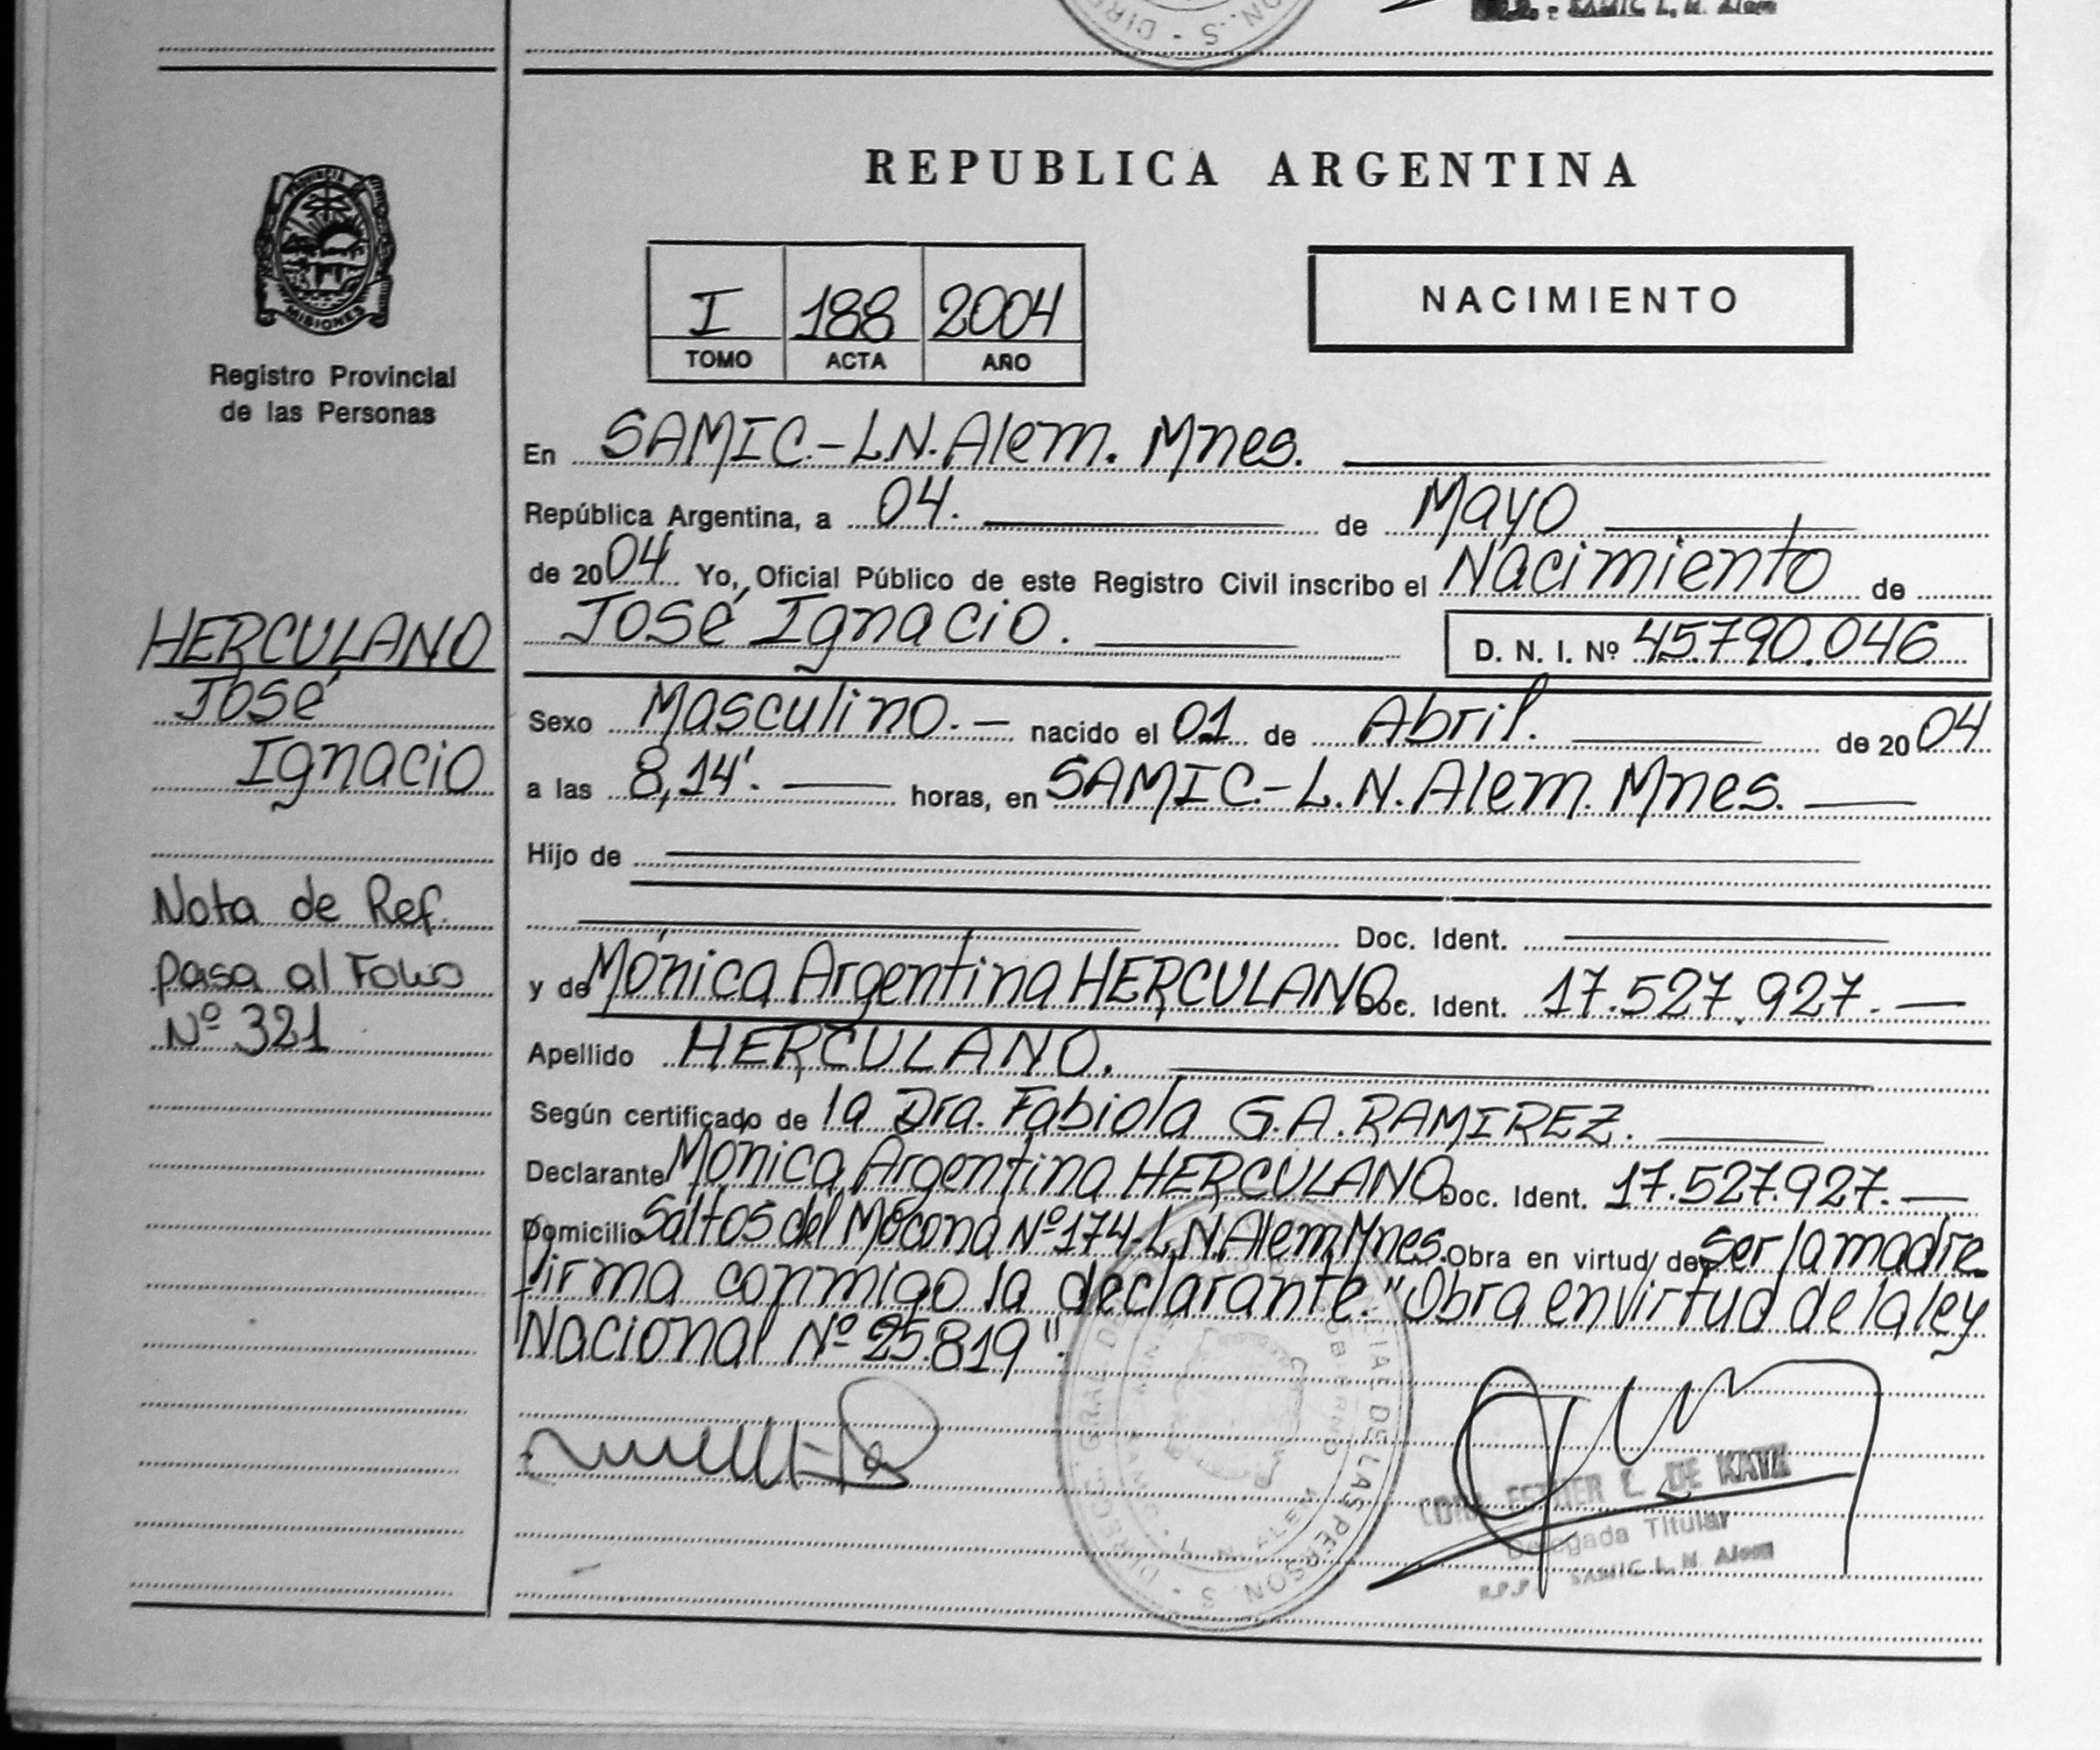 SAMIC L. N. Alem
REPUBLICA ARGENTINA
PROVINCIA
MISIONES
Registro Provincial
de las Personas
I 188 2004
TOMO ACTA AÑO
NACIMIENTO
En SAMIC.-L.N.Alem. Mnes.
República Argentina, a 04. de Mayo
de 2004 Yo, Oficial Público de este Registro Civil inscribo el Nacimiento de
José Ignacio. D. N. I. Nº 45.790.046
HERCULANO
José
Ignacio
Sexo Masculino.- nacido el 01 de Abril. de 2004
a las 8,14'. horas, en SAMIC.-L.N.Alem. Mnes.
Hijo de
Doc. Ident.
Nota de Ref.
pasa al Folio
Nº 321
y de Mónica Argentina HERCULANO Doc. Ident. 17.527.927.-
Apellido HERCULANO.
Según certificado de la Dra. Fabiola G.A. RAMIREZ.
Declarante Mónica Argentina HERCULANO Doc. Ident. 17.527.927.-
Domicilio Saltos del Mocona Nº 174-L.N.Alem Mnes. Obra en virtud de Ser la madre
firma conmigo la declarante."Obra en virtud de la ley
Nacional Nº 25.819".
ESTHER L. DE KATZ
Delegada Titular
R.P.P. SAMIC L. N. Alem